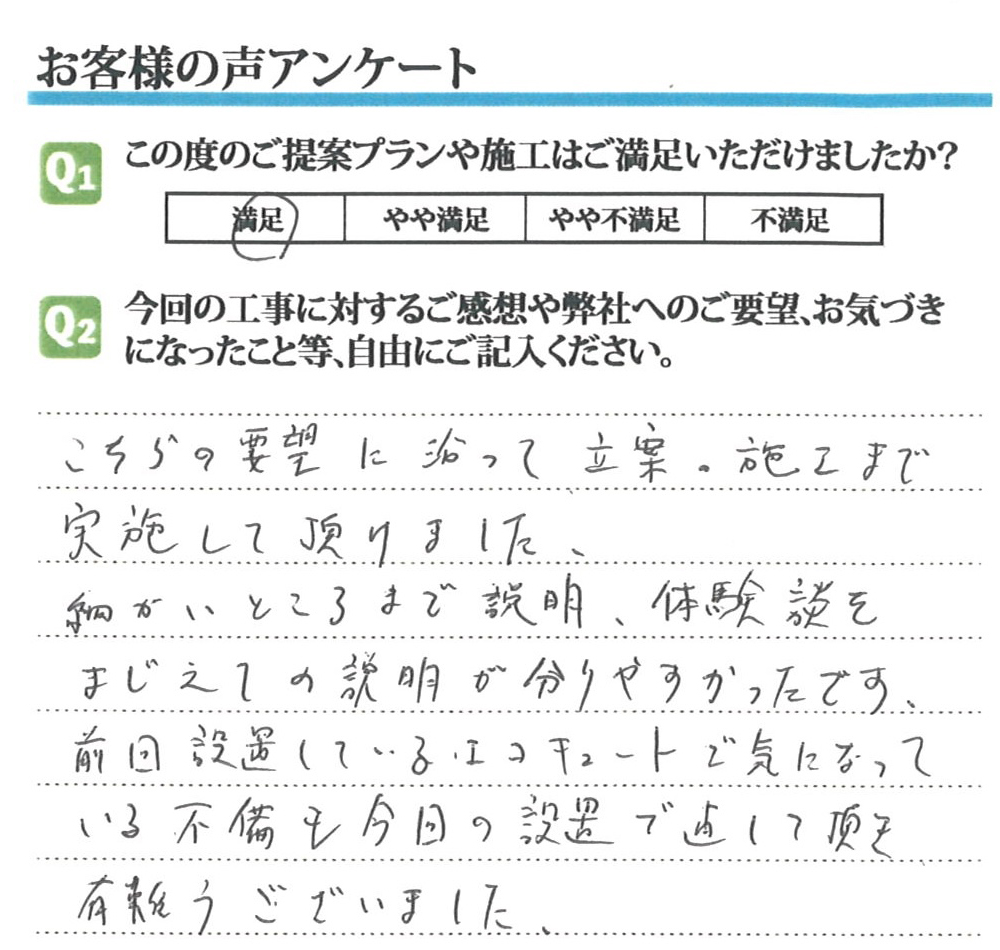 お客様の声アンケート
Q1 この度のご提案プランや施工はご満足いただけましたか?
満足 やや満足 やや不満足 不満足
Q2 今回の工事に対するご感想や弊社へのご要望、お気づき
になったこと等、自由にご記入ください。
こちらの要望に沿って立案。施工まで
実施して頂けました、
細かいところまで説明、体験談を
まじえての説明が分りやすかったです、
前回設置しているエコキュートで気になって
いる不備も今回の設置で直して頂き
有難うございました、